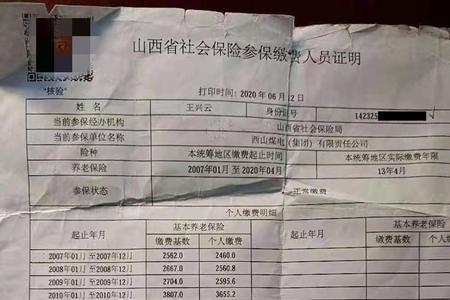 山西省社会保险参保缴费人员证明
"核验"
打印时间：2020年06月12日
姓名 王兴云 身份证号 142325
当前参保经办机构 山西省社会保险局
当前参保单位名称 西山煤电（集团）有限责任公司
险种 本统筹地区缴费起止时间 本统筹地区实际缴费年限
养老保险 2007年01月 至2020年04月 13年4月
参保状态 正常缴费
个人缴费明细
起止年月 基本养老保险 基本养老保险
缴费基数 个人缴费 起止年月 缴费基数 个人缴费
2007年01月 至2007年12月 2562.0 2460.0
2008年01月 至2008年12月 2667.0 2560.8
2009年01月 至2009年12月 2704.0 2595.6
2010年01月 至2010年12月 3807.0 3655.2